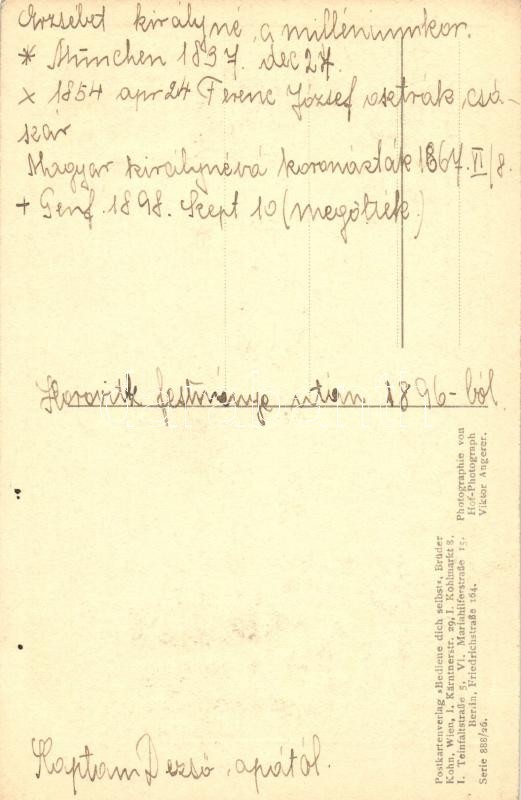 Erzsébet királyné, a milléniumkor.
* München 1837. dec 27.
x 1854 apr 24 Ferenc József osztrák csá-
szár
Magyar királynévá koronázták 1867. VI/8.
+ Genf. 1898. Szept 10 (megölték)
Horovitz festménye után 1896-ból
Kaptam Dezső apától.
Postkartenverlag »Bediene dich selbst«, Brüder
Kohn, Wien, I. Kärntnerstr. 29, I. Kohlmarkt 8,
I. Teinfaltstraße 5, VI. Mariahilferstraße 15.
Berlin, Friedrichstraße 164.
Serie 888/26.
Photographie von
Hof-Photograph
Viktor Angerer.